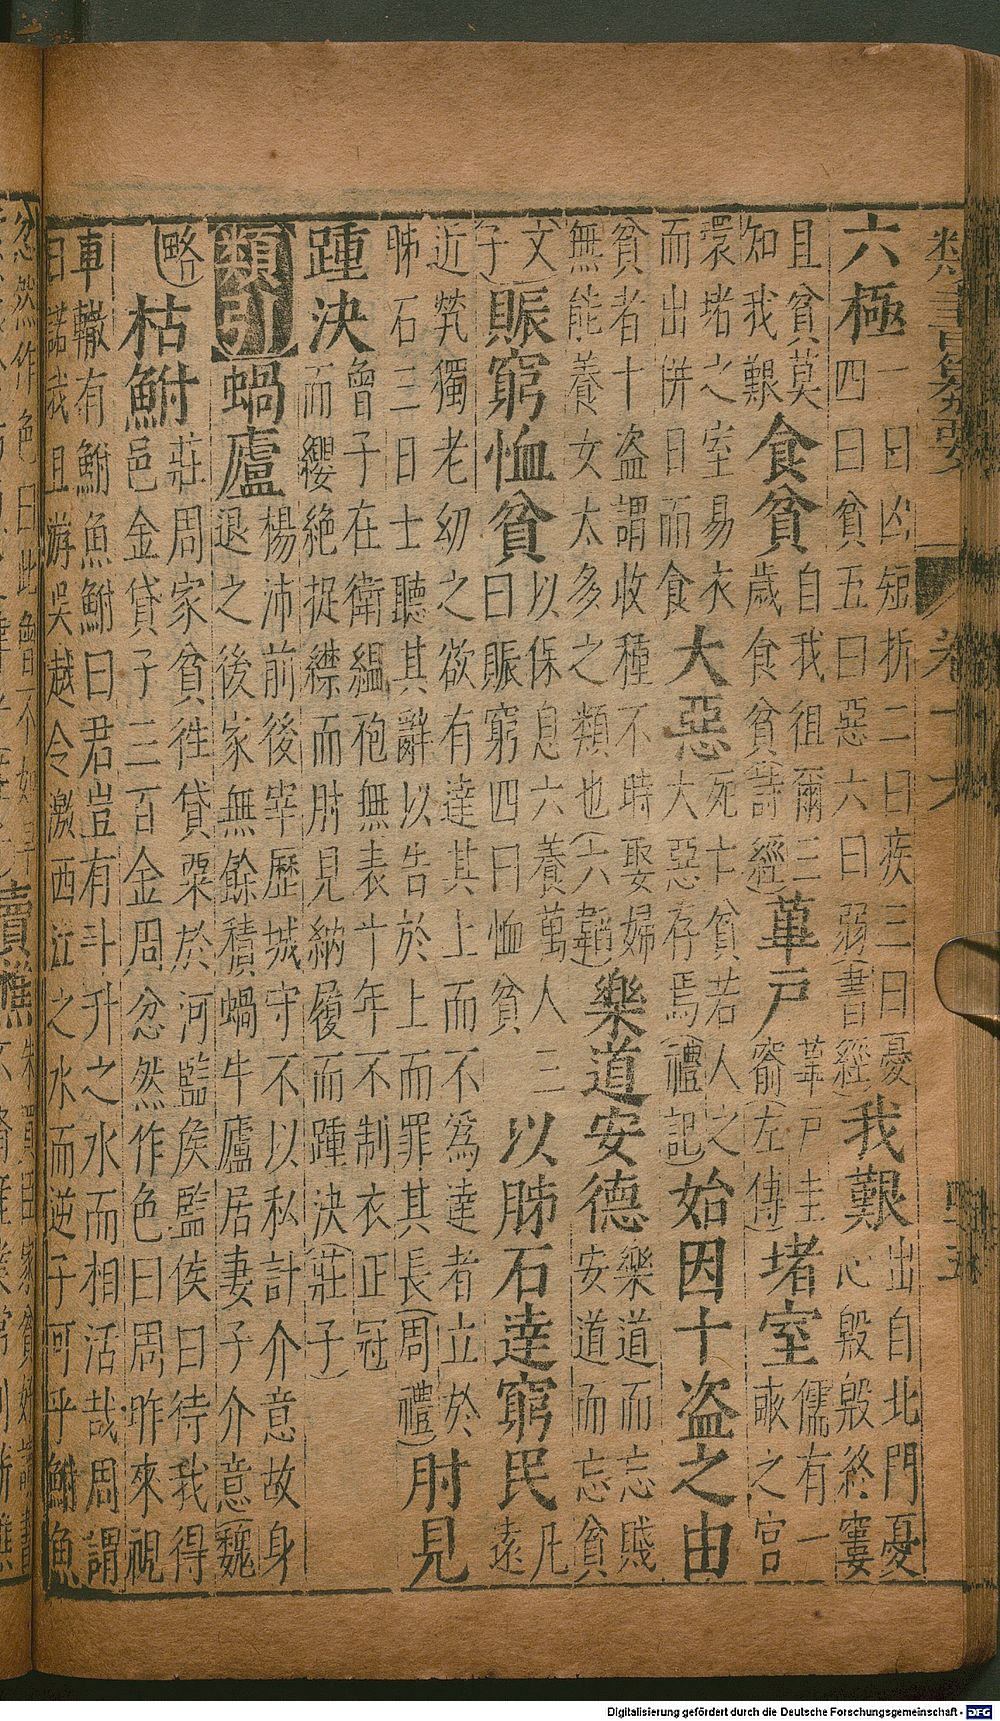 類書纂要　卷十六　四十五
六極一曰凶短折二曰疾三曰憂四曰貧五曰惡六曰弱(書經)我艱出自北門憂心殷殷終窶
且貧莫知我艱食貧自我徂爾三歲食貧(詩經)蓽戶蓽戶圭窬(左傳)堵室儒有一畝之宮
環堵之室易衣而出併日而食大惡死亡貧若人之大惡存焉(禮記)始因十盜之由
貧者十盜謂收種不時娶婦無能養女太多之類也(六韜)樂道安德樂道而忘賤安道而忘貧
(文子)賑窮恤貧以保息六養萬人三曰賑窮四曰恤貧以胏石達窮民凡遠
近煢獨老幼之欲有達其上而不為達者立於胏石三日士聽其辭以告於上而罪其長(周禮)肘見
踵決曾子在衛縕袍無表十年不制衣正冠而纓絕捉襟而肘見納履而踵決(莊子)
【類引】蝸廬楊沛前後宰歷城守不以私計介意故身退之後家無餘積蝸牛廬居妻子介意(魏
略)枯鮒莊周家貧往貸粟於河監侯監侯曰待我得邑金貸子三百金周忿然作色曰周昨來視
車轍有鮒魚鮒曰君豈有斗升之水而相活哉周謂曰諾我且游吳越令激西江之水而逆子可乎鮒魚
忿然作色曰此曾不如早　讀樵朱買臣家貧好讀書
Digitalisierung gefördert durch die Deutsche Forschungsgemeinschaft - DFG